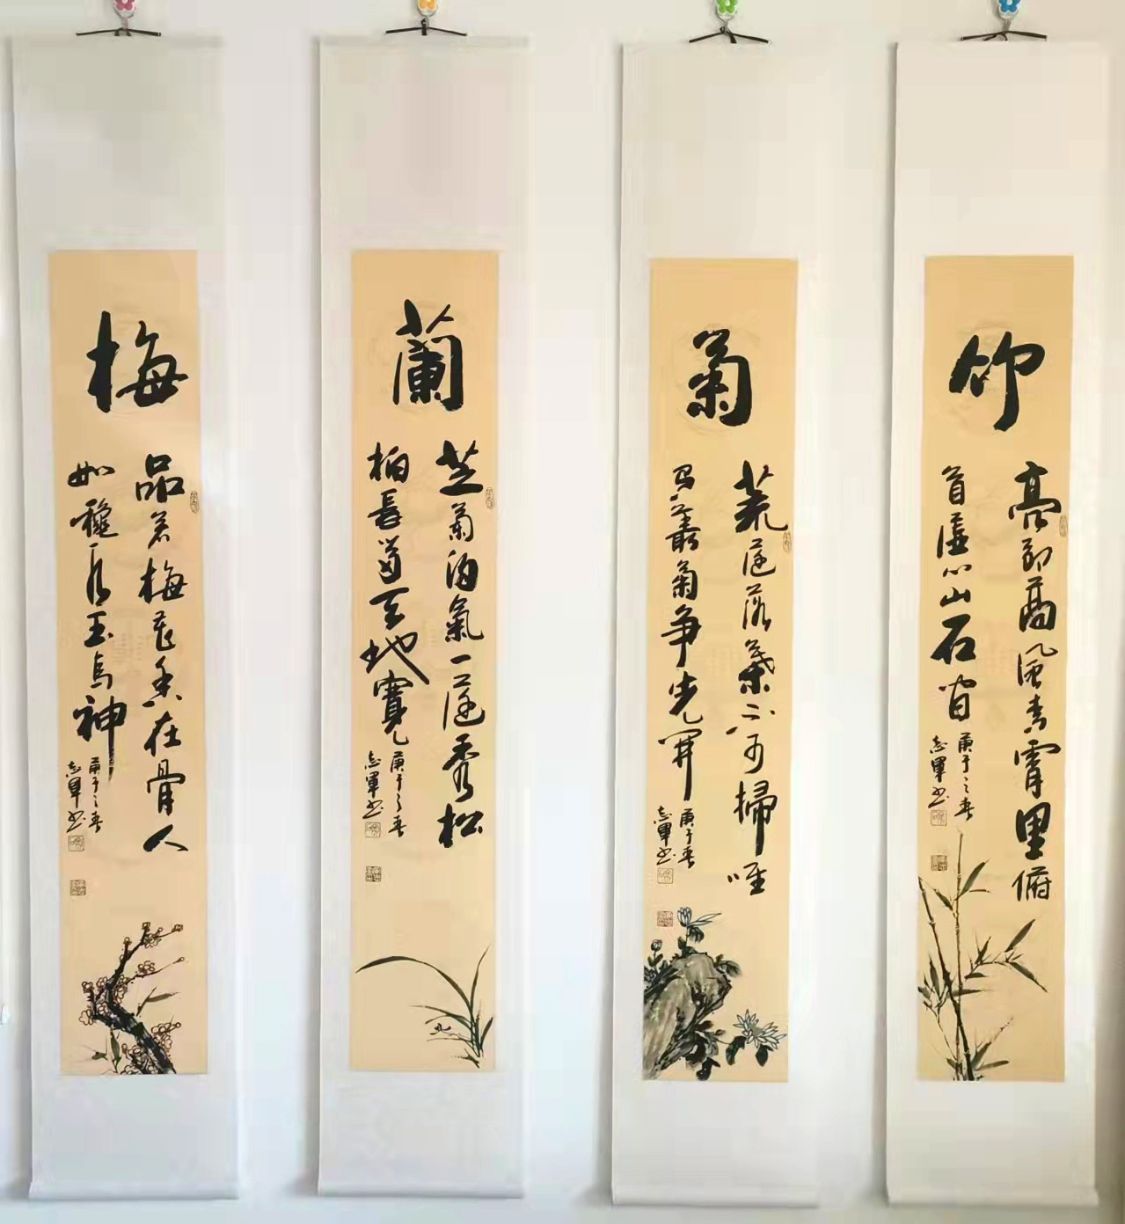 梅
品若梅花香在骨人
如穐水玉為神
庚子之春
志軍书
蘭
芝菊氣一庭秀松
柏長留天地寬
庚子之春
志軍书
菊
荒庭落葉不可掃唯
有叢菊争先開
庚子春
志軍书
竹
亮節高風青霄里俯
首虛心山石間
庚子之春
志軍书